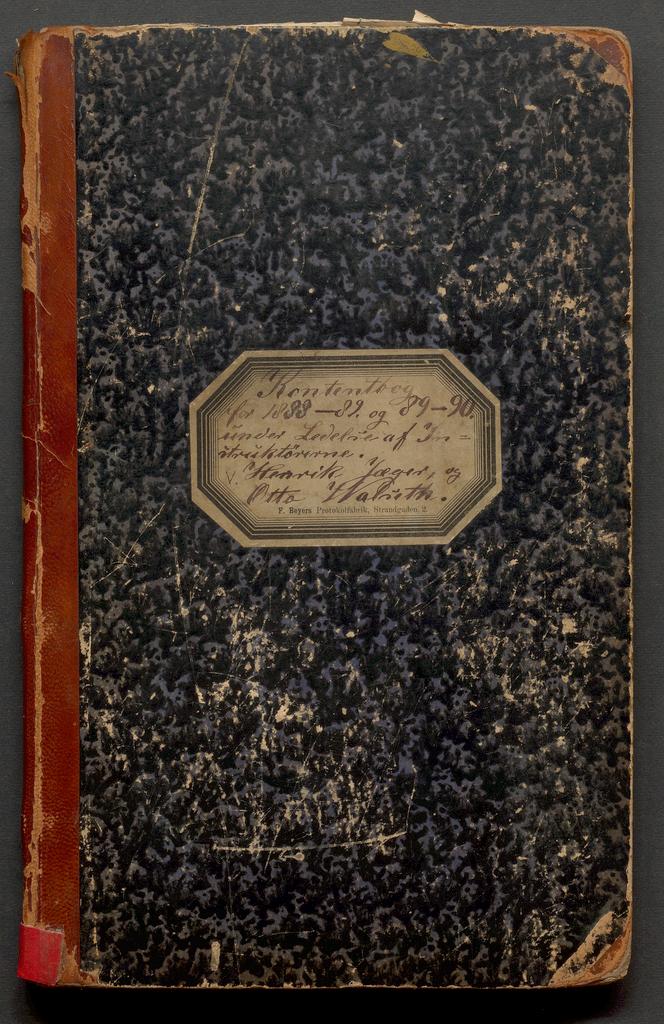 Kontentbog
for 1888-89. og 89-90.
under Ledelse af In=
struktörerne.
v. Henrik Jæger, og
Otto Valseth.
F. Beyers Protokolfabrik, Strandgaden 2.